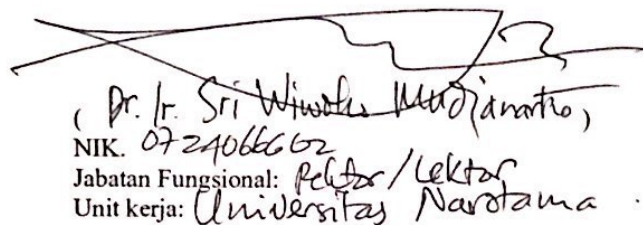 ( Dr. Ir. Sri Wiwoho Mudjanarko )
NIK. 0724066602
Jabatan Fungsional: Rektor/Lektor
Unit kerja: Universitas Narotama